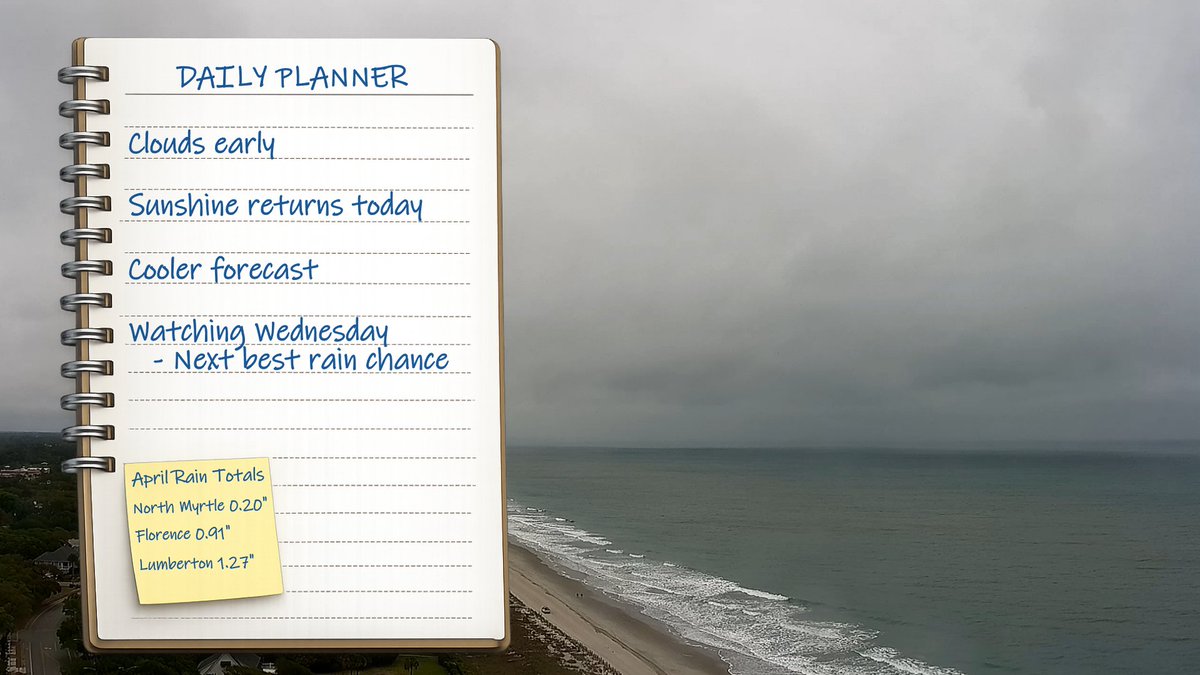 DAILY PLANNER
Clouds early
Sunshine returns today
Cooler forecast
Watching Wednesday
- Next best rain chance
April Rain Totals
North Myrtle 0.20"
Florence 0.91"
Lumberton 1.27"